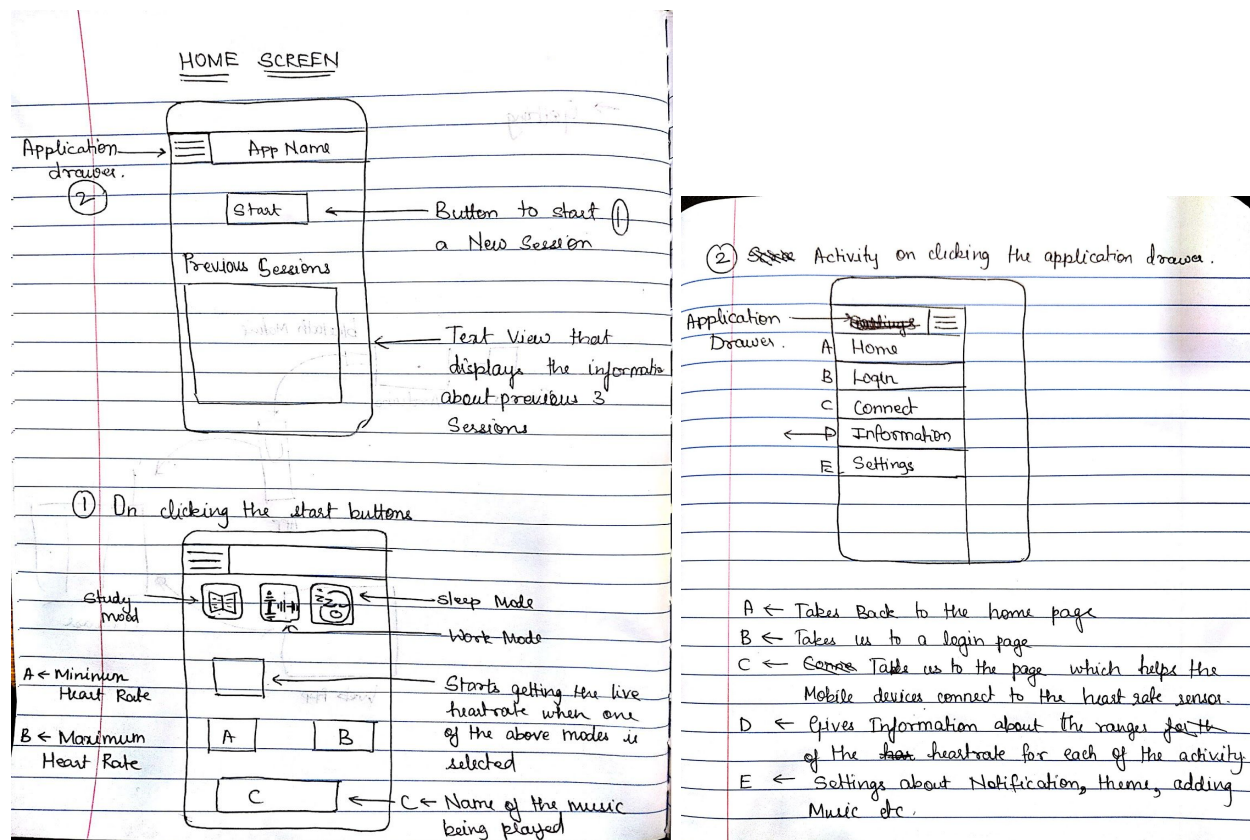 HOME SCREEN
Application
drawer.
2
App Name
Start
Button to start 1
a New Session
Previous Sessions
Text View that
displays the informatio
about previous 3
Sessions
1 On clicking the start buttons
Study
mood
Sleep Mode
Work Mode
A ← Mininum
Heart Rate
Starts getting the live
heartrate when one
of the above modes is
selected
B ← Maximum
Heart Rate
A
B
C
C ← Name of the music
being played
2 Activity on clicking the application drawer.
Application
Drawer.
A Home
B Login
C Connect
D Information
E Settings
A ← Takes Back to the home page
B ← Takes us to a login page
C ← Take us to the page which helps the
Mobile devices connect to the heart rate sensor.
D ← Gives Information about the ranges
of the heartrate for each of the activity.
E ← Settings about Notification, theme, adding
Music etc.